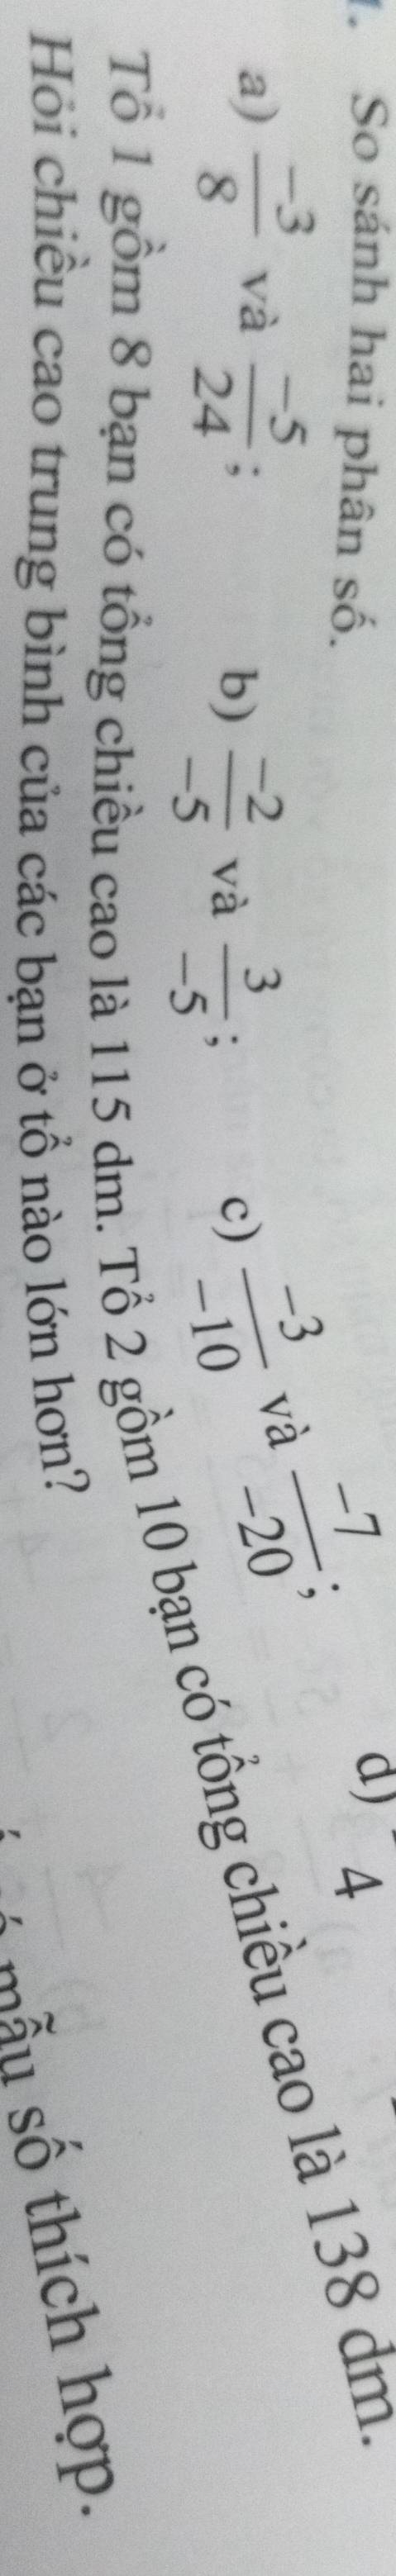 1. So sánh hai phân số.
a) -3/8 và -5/24; b) -2/-5 và 3/-5; c) -3/-10 và -7/-20; d) 4
Tổ 1 gồm 8 bạn có tổng chiều cao là 115 dm. Tổ 2 gồm 10 bạn có tổng chiều cao là 138 dm.
Hỏi chiều cao trung bình của các bạn ở tổ nào lớn hơn?
mẫu số thích hợp.